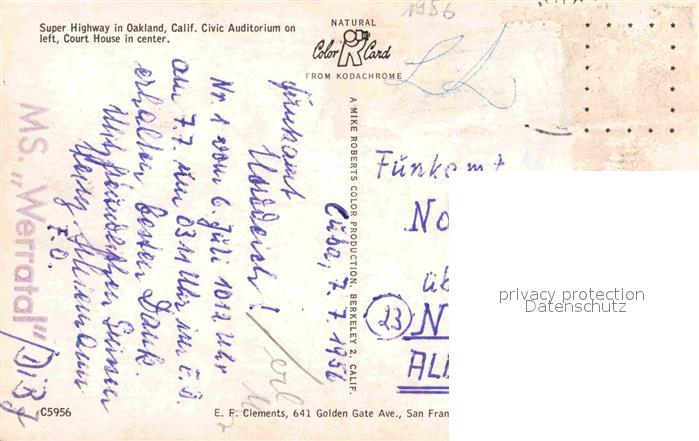 Super Highway in Oakland, Calif. Civic Auditorium on
left, Court House in center.
NATURAL
Color Card
FROM KODACHROME
1956
A MIKE ROBERTS COLOR PRODUCTION, BERKELEY 2, CALIF.
Cuba, 7. 7. 1956
Funkamt
Norddeich!
Nr. 1 vom 6. Juli 1012 Uhr
am 7.7 um 0311 Uhr
erhalten besten Dank.
Mit freundlichem
F.O.
MS. „Werratal"/DIBJ
Funkamt
No
üb
23 N
ALL
privacy protection
Datenschutz
C5956
E. F. Clements, 641 Golden Gate Ave., San Fran